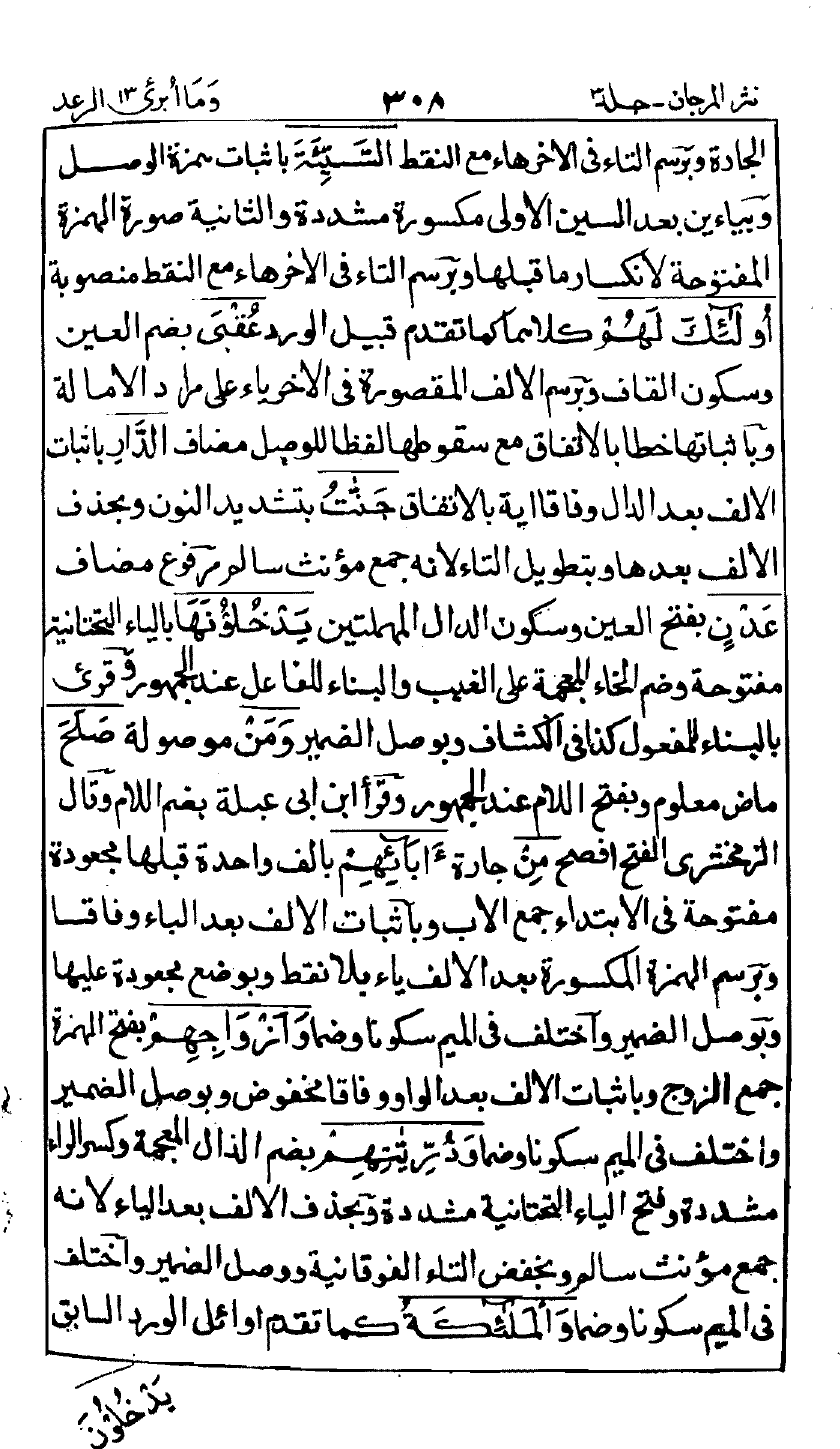 نثر المرجان - جلد ٣ ٣٠٨ وَمَا أبرئ ١٣ الرعد
الجادة وبرسم التاء فى الاخر هاء مع النقط السَّيِّئَةَ باثبات همزة الوصل
وبياءين بعد السين الاولى مكسورة مشددة والثانية صورة الهمزة
المفتوحة لانكسار ما قبلها وبرسم التاء فى الاخر هاء مع النقط منصوبة
أُولَٰئِكَ لَهُمْ كلاهما كما تقدم قبيل الورد عُقْبَى بضم العين
وسكون القاف وبرسم الالف المقصورة فى الاخر ياء على مراد الامالة
وباثباتها خطا بالاتفاق مع سقوطها لفظا للوصل مضاف الدَّارِ باثبات
الالف بعد الدال وفاقا اية بالاتفاق جَنّٰتُ بتشديد النون وبحذف
الالف بعدها وبتطويل التاء لانه جمع مؤنث سالم مرفوع مضاف
عَدْنٍ بفتح العين وسكون الدال المهملتين يَدْخُلُوْنَهَا بالياء التحتانية
مفتوحة وضم الخاء المعجمة على الغيب والبناء للفاعل عند الجمهور وقرئ
بالبناء للمفعول كذا فى الكشاف وبوصل الضمير وَمَنْ موصولة صَلَحَ
ماض معلوم وبفتح اللام عند الجمهور وقرأ ابن ابى عبلة بضم اللام وقال
الزمخشرى الفتح افصح مِنْ جارة ءَابَائِهِمْ بالف واحدة قبلها مجعودة
مفتوحة فى الابتداء جمع الاب وباثبات الالف بعد الباء وفاقا
وبرسم الهمزة المكسورة بعد الالف ياء بلا نقط وبوضع مجعودة عليها
وبوصل الضمير واختلف فى الميم سكونا وضما وَاَزْوَاجِهِمْ بفتح الهمزة
جمع الزوج وباثبات الالف بعد الواو وفاقا مخفوض وبوصل الضمير
واختلف فى الميم سكونا وضما وَذُرِّيّٰتِهِمْ بضم الذال المعجمة وكسر الراء
مشددة وفتح الياء التحتانية مشددة وبحذف الالف بعد الياء لانه
جمع مؤنث سالم وبخفض التاء الفوقانية ووصل الضمير واختلف
فى الميم سكونا وضما وَالْمَلٰئِكَةُ كما تقدم اوائل الورد السابق
يَدْخُلُوْنَ